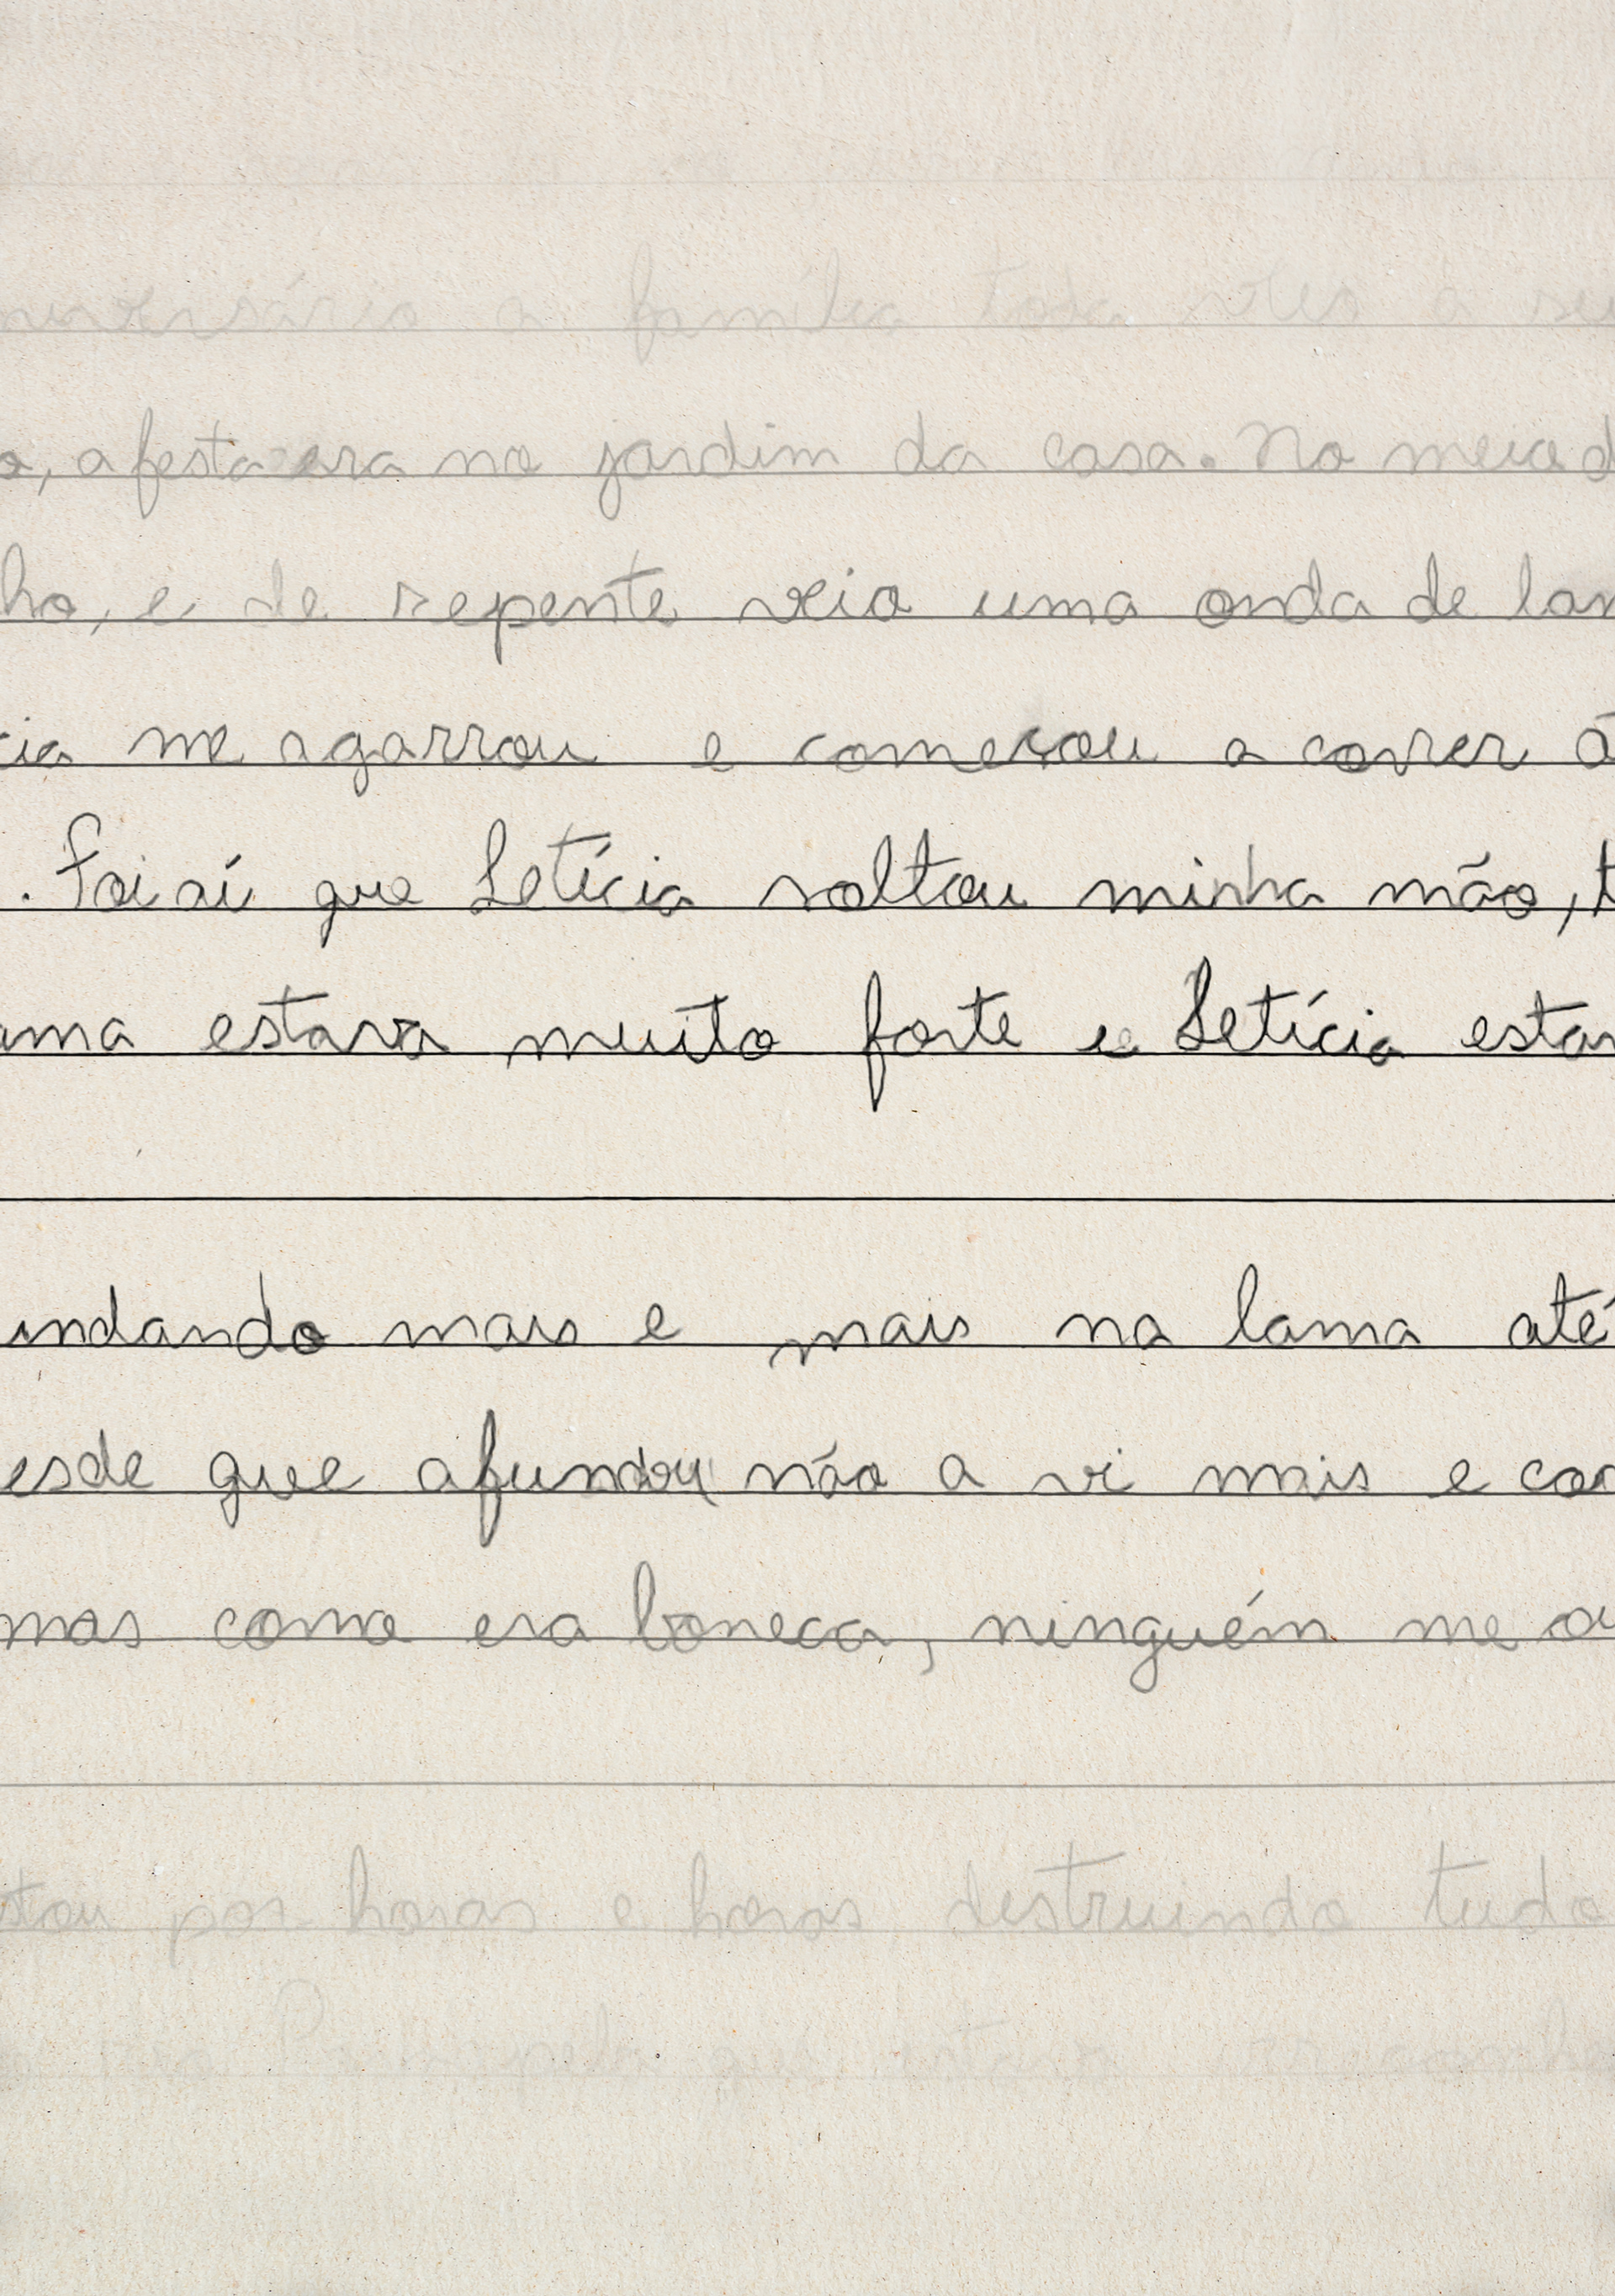 niversário a família toda veio a su
o, a festa era no jardim da casa. No meio d
ho, e de repente veio uma onda de lam
cia me agarrou e começou a correr a
. Foi aí que Letícia soltou minha mão, t
ama estava muito forte e Letícia estav
undando mais e mais na lama até
esde que afundou não a vi mais e com
mas como era boneca, ninguém me ou
stou por horas e horas destruindo tudo